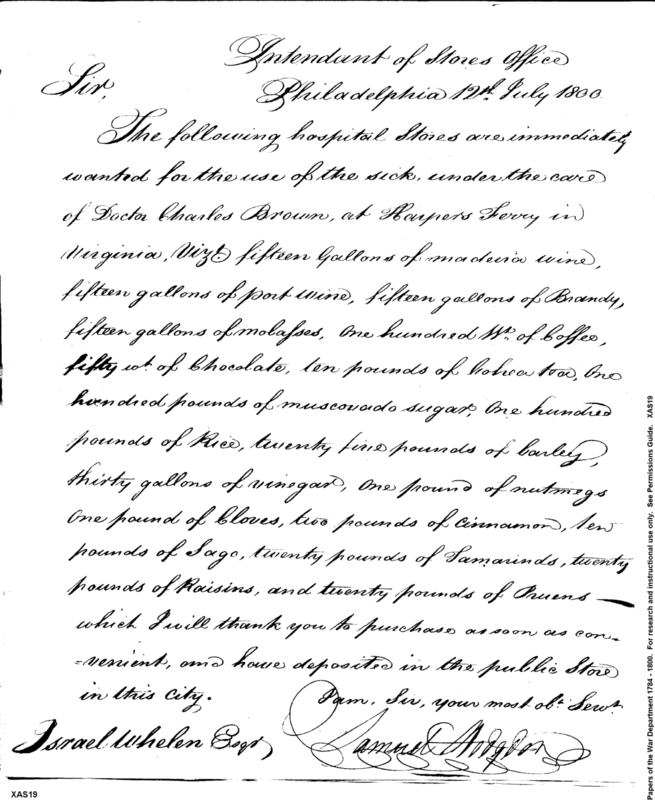 Intendant of Stores Office
Sir,
Philadelphia 12th. July 1800.
The following hospital Stores are immediately
wanted for the use of the sick, under the care
of Doctor Charles Brown, at Harpers Ferry in
Virginia, Vizt. fifteen Gallons of madeira wine,
fifteen gallons of port wine, fifteen gallons of Brandy,
fifteen gallons of molasses, One hundred Wt. of Coffee,
fifty wt. of Chocolate, ten pounds of bohea tea, One
hundred pounds of muscovado sugar, One hundred
pounds of Rice, twenty five pounds of barley,
thirty gallons of vinegar, One pound of nutmegs
One pound of Cloves, two pounds of Cinnamon, ten
pounds of Sago, twenty pounds of Tamarinds, twenty
pounds of Raisins, and twenty pounds of Pruens —
which I will thank you to purchase as soon as con=
=venient, and have deposited in the public Store
in this City.
I am, Sir, your most obt. Servt.
Israel Whelen Esqr
Samuel Hodgdon
XAS19
Papers of the War Department 1784 - 1800. For research and instructional use only. See Permissions Guide. XAS19